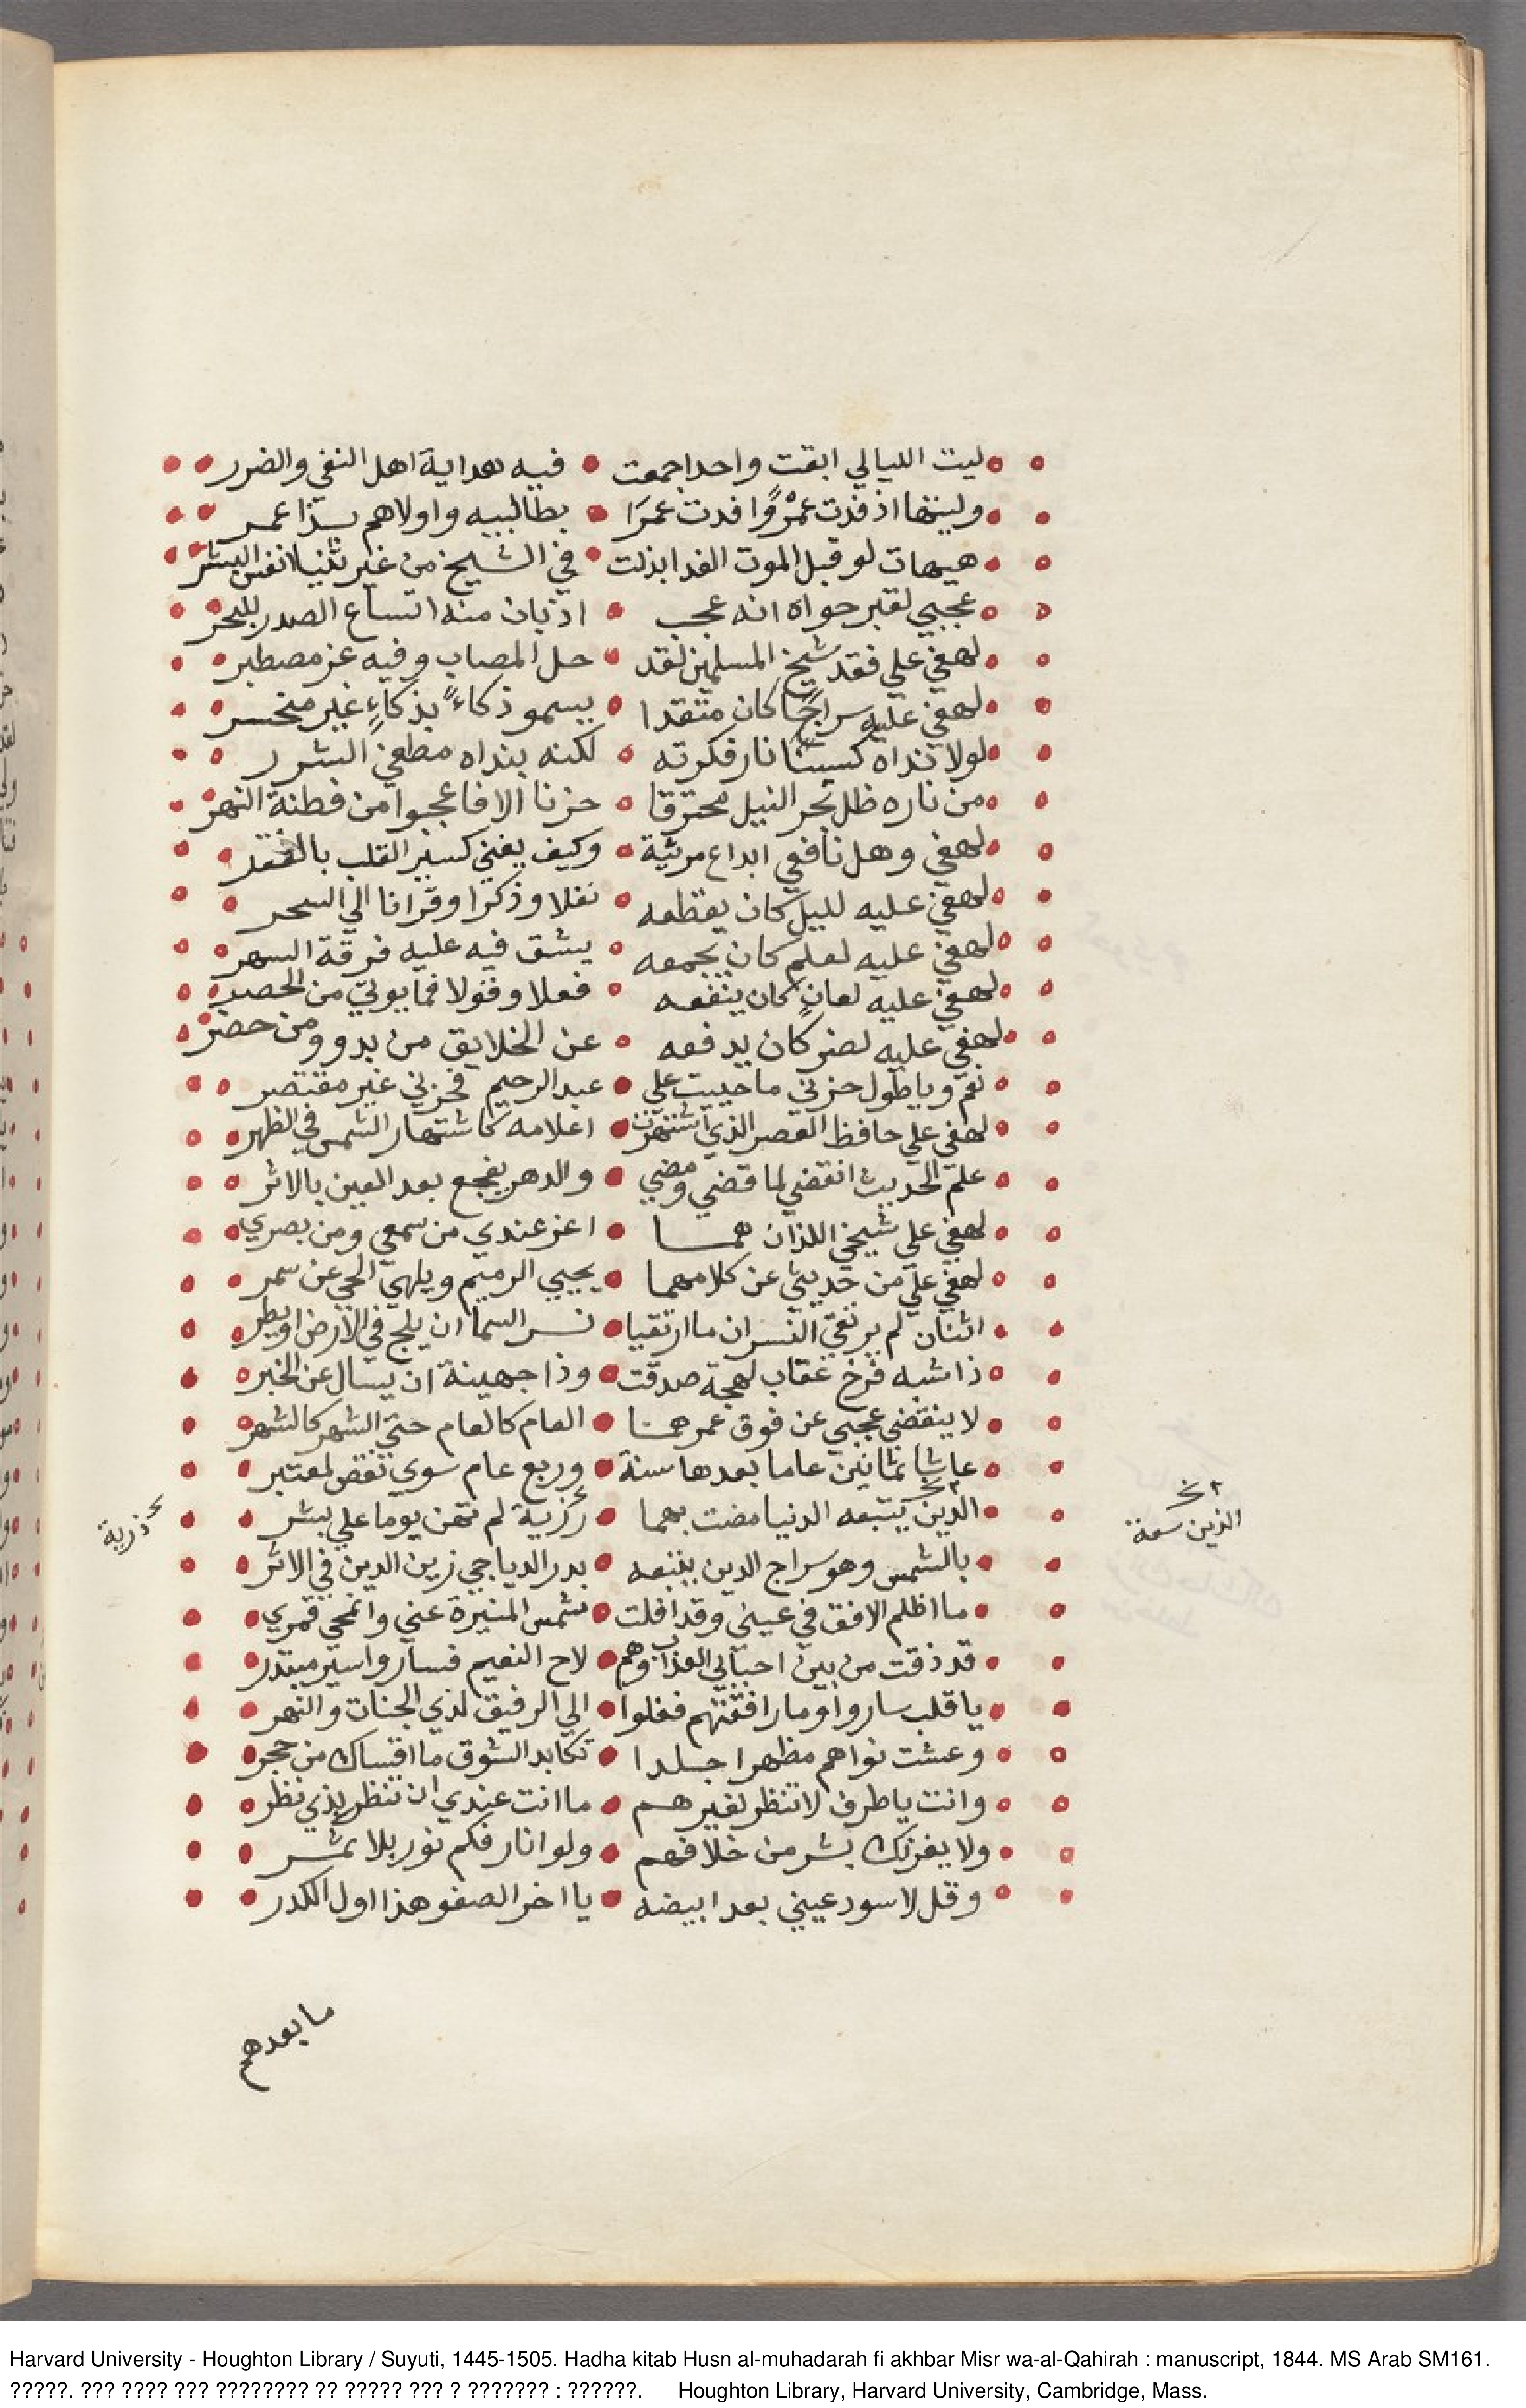 ليت الليالي ابقت واحدا جمعت فيه هداية اهل النفي والضرر
وليتها اذ فدت عمرًوا فدت عمرَا بطالبيه واولاهم بذا عمر
هيهات لو قبل الموت الفدا بذلت في الشيخ من غير ثنيا انفس البشر
عجبي لقبر حواه انه عجب اذ بان منه اتساع الصدر للبحر
لهفي علي فقد شيخ المسلمين لقد حل المصاب وفيه عز مصطبر
لهفي عليه سراجًا كان متقدا يسمو ذكاءً بذكاءٍ غير منحسر
لولا نداه كسبتنا نار فكرته لكنه بنداه مطفي الشرر
من ناره ظل بحر النيل محترقا حزنا الا فاعجبوا من فطنة النهر
لهفي وهل نافعي ابداع مرثية وكيف يغني كسير القلب بالفقد
لهفي عليه لليل كان يقطعه نفلا وذكرا وقرانا الي السحر
لهفي عليه لعلم كان يجمعه يشق فيه عليه فرقة السهر
لهفي عليه لعانٍ كان ينفعه فعلا وقولا فما يوتي من الحصر
لهفي عليه لضر كان يدفعه عن الخلايق من بدو ومن حضر
نعم ويا طول حزني ما حييت علي عبد الرحيم فحزني غير مقتصر
لهفي علي حافظ العصر الذي اشتهرت اعلامه كاشتهار الشمس في الظهر
علم الحديث انقضي لما قضي ومضي والدهر يفجع بعد العين بالاثر
لهفي علي شيخي اللذان هما اعز عندي من سمعي ومن بصري
لهفي علي من حديثي عن كلامهما يحيي الرميم ويلهي الحي عن سمر
اثنان لم يرتقي النسران ما ارتقيا نسر السما ان يلج في الارض او يطر
ذا شبه فرخ عقاب لهجة صدقت وذا جهينة ان يسال عن الخبر
لا ينقضي عجبي عن فوق عمرهما العام كالعام حتي الشهر كالشهر
عاشا ثمانين عاما بعدها سنة وربع عام سوي نقص لمعتبر
الدين يتبعه الدنيا مضت بهما رزية لم تهن يوما علي بشر
الذين سعة
ذرية
بالشمس وهو سراج الدين يتبعه بدر الدياجي زين الدين في الاثر
ما اظلم الافق في عيني وقد افلت شمس المنيرة عني وانمحي قمري
قد ذقت من بين احبابي العذاب وهم لاح النعيم فساروا سير مبتدر
يا قلب ساروا وما رافقتهم فغلوا الي الرفيق لذي الجنات والنهر
وعشت نواهم مظهرا جلدا تكابد الشوق ما اقساك من حجر
وانت يا طرف لا تنظر لغيرهم ما انت عندي ان تنظر بذي نظر
ولا يغرنك بشر من خلافهم ولو انار فكم نور بلا ثمر
وقل لاسود عيني بعد ابيضه يا اخر الصفو هذا اول الكدر
ما بعدهم
Harvard University - Houghton Library / Suyuti, 1445-1505. Hadha kitab Husn al-muhadarah fi akhbar Misr wa-al-Qahirah : manuscript, 1844. MS Arab SM161.
?????. ??? ???? ??? ???????? ?? ????? ??? ? ??????? : ??????. Houghton Library, Harvard University, Cambridge, Mass.